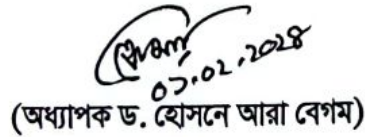 ০১.০২.২০২৪
(অধ্যাপক ড. হোসনে আরা বেগম)